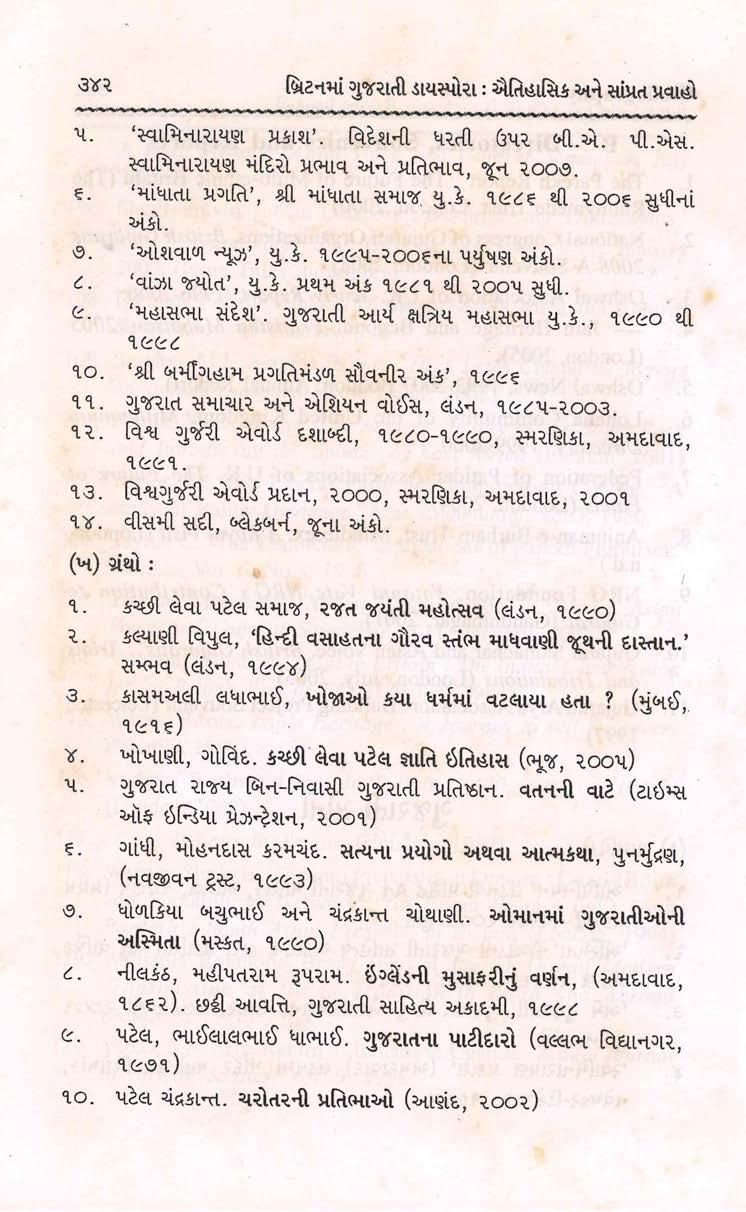 ૩૪૨ બ્રિટનમાં ગુજરાતી ડાયસ્પોરા : ઐતિહાસિક અને સાંપ્રત પ્રવાહો
૫. ‘સ્વામિનારાયણ પ્રકાશ’. વિદેશની ધરતી ઉપર બી.એ. પી.એસ.
સ્વામિનારાયણ મંદિરો પ્રભાવ અને પ્રતિભાવ, જૂન ૨૦૦૭.
૬. ‘માંધાતા પ્રગતિ’, શ્રી માંધાતા સમાજ યુ.કે. ૧૯૮૬ થી ૨૦૦૬ સુધીનાં
અંકો.
૭. ‘ઓશવાળ ન્યૂઝ’, યુ.કે. ૧૯૯૫-૨૦૦૬ના પર્યુષણ અંકો.
૮. ‘વાંઝા જ્યોત’, યુ.કે. પ્રથમ અંક ૧૯૮૧ થી ૨૦૦૫ સુધી.
૯. ‘મહાસભા સંદેશ’. ગુજરાતી આર્ય ક્ષત્રિય મહાસભા યુ.કે., ૧૯૯૦ થી
૧૯૯૮
૧૦. ‘શ્રી બર્મીંગહામ પ્રગતિમંડળ સૌવનીર અંક’, ૧૯૯૬
૧૧. ગુજરાત સમાચાર અને એશિયન વોઈસ, લંડન, ૧૯૮૫-૨૦૦૩.
૧૨. વિશ્વ ગુર્જરી એવોર્ડ દશાબ્દી, ૧૯૮૦-૧૯૯૦, સ્મરણિકા, અમદાવાદ,
૧૯૯૧.
૧૩. વિશ્વગુર્જરી એવોર્ડ પ્રદાન, ૨૦૦૦, સ્મરણિકા, અમદાવાદ, ૨૦૦૧
૧૪. વીસમી સદી, બ્લેકબર્ન, જૂના અંકો.
(ખ) ગ્રંથો :
૧. કચ્છી લેવા પટેલ સમાજ, રજત જયંતી મહોત્સવ (લંડન, ૧૯૯૦)
૨. કલ્યાણી વિપુલ, ‘હિન્દી વસાહતના ગૌરવ સ્તંભ માધવાણી જૂથની દાસ્તાન.’
સમ્ભવ (લંડન, ૧૯૯૪)
૩. કાસમઅલી લધાભાઈ, ખોજાઓ કયા ધર્મમાં વટલાયા હતા ? (મુંબઈ,
૧૯૧૬)
૪. ખોખાણી, ગોવિંદ. કચ્છી લેવા પટેલ જ્ઞાતિ ઇતિહાસ (ભૂજ, ૨૦૦૫)
૫. ગુજરાત રાજ્ય બિન-નિવાસી ગુજરાતી પ્રતિષ્ઠાન. વતનની વાટે (ટાઇમ્સ
ઑફ ઇન્ડિયા પ્રેઝન્ટેશન, ૨૦૦૧)
૬. ગાંધી, મોહનદાસ કરમચંદ. સત્યના પ્રયોગો અથવા આત્મકથા, પુનર્મુદ્રણ,
(નવજીવન ટ્રસ્ટ, ૧૯૯૩)
૭. ધોળકિયા બચુભાઈ અને ચંદ્રકાન્ત ચોથાણી. ઓમાનમાં ગુજરાતીઓની
અસ્મિતા (મસ્કત, ૧૯૯૦)
૮. નીલકંઠ, મહીપતરામ રૂપરામ. ઇંગ્લેંડની મુસાફરીનું વર્ણન, (અમદાવાદ,
૧૮૬૨). છઠ્ઠી આવત્તિ, ગુજરાતી સાહિત્ય અકાદમી, ૧૯૯૮
૯. પટેલ, ભાઈલાલભાઈ ધાભાઈ. ગુજરાતના પાટીદારો (વલ્લભ વિદ્યાનગર,
૧૯૭૧)
૧૦. પટેલ ચંદ્રકાન્ત. ચરોતરની પ્રતિભાઓ (આણંદ, ૨૦૦૨)